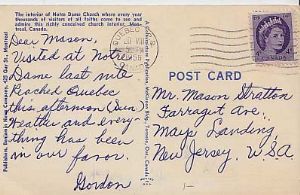 The interior of Notre Dame Church where every year
thousands of visitors of all faiths come to see and
admire this richly conceived church interior.
treal, Canada.
Dear Mason,
Visited at Notre
Dame last nite
Reached Quebec
this afternoon (Sun)
Weather and every-
thing has been
in our favor.
Gordon
QUEBEC
POST CARD
CANADA
Mr. Mason Stratton
Farragut Ave.,
Mays Landing
New Jersey, U.S.A